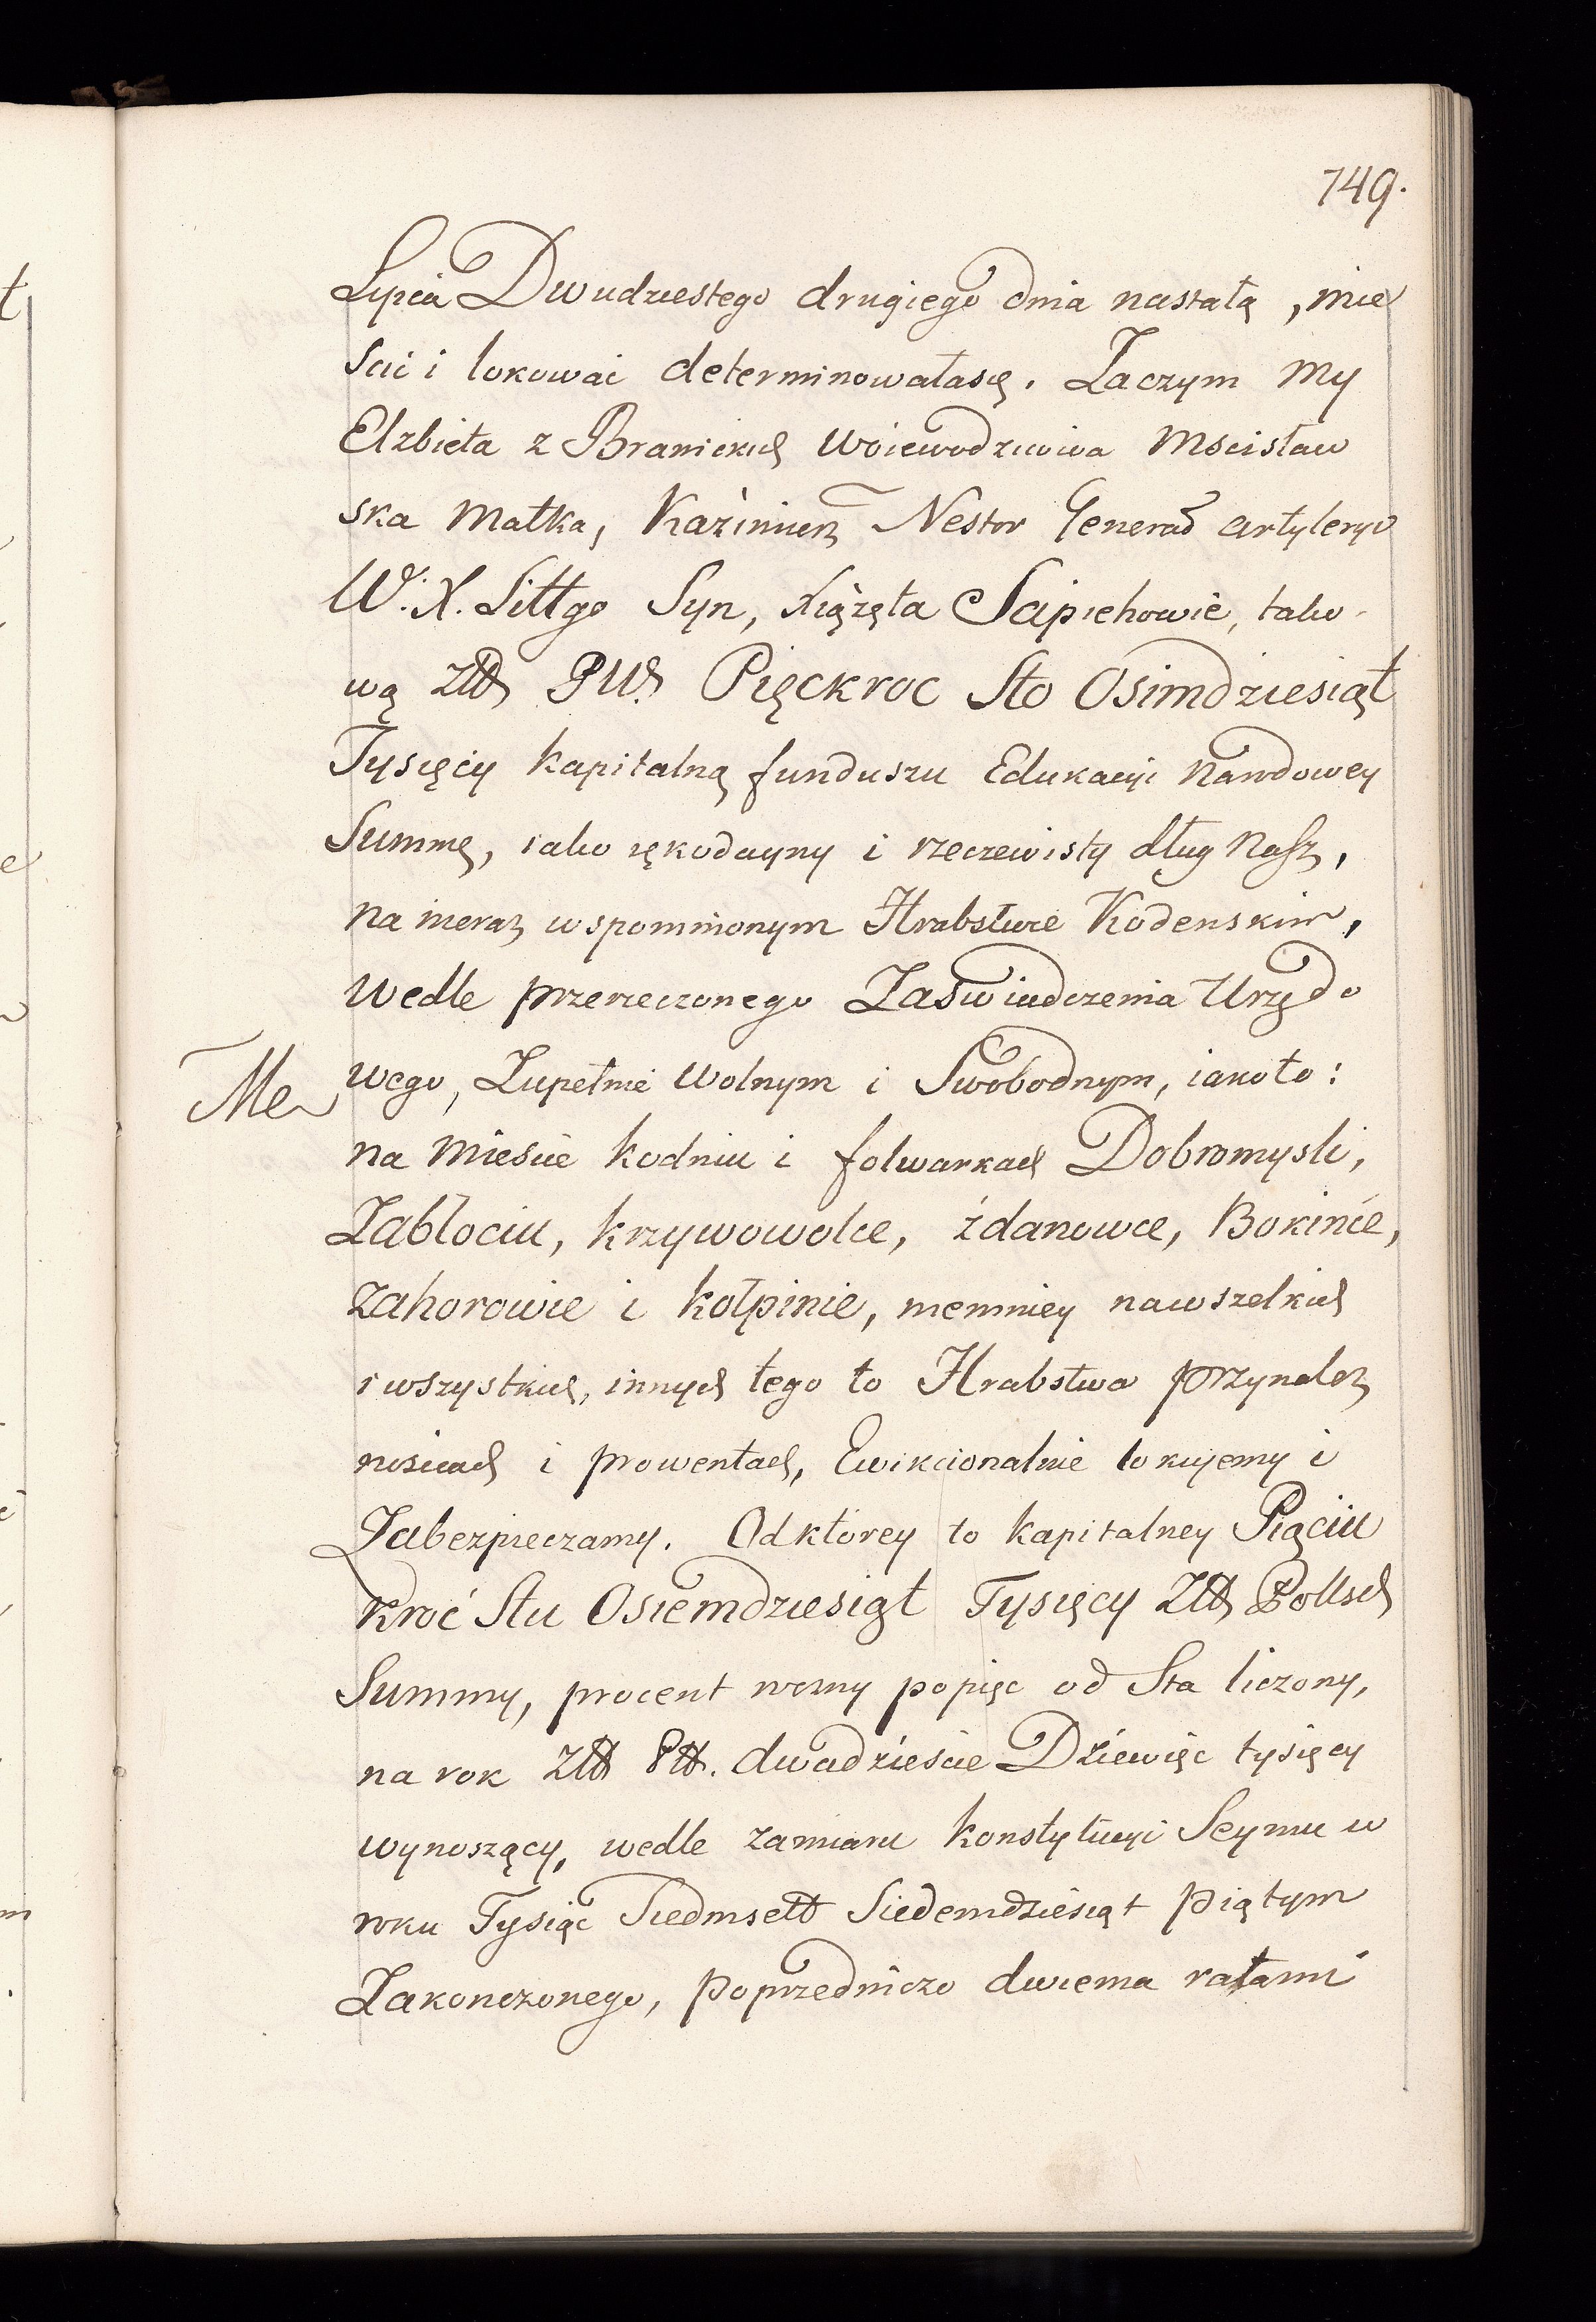 749.
Lipca Dwudziestego drugiego dnia nastałą, mie
scić i lokować determinowałasię. Zaczym My
Elzbieta z Branickich Woiewodzicowa Mscisław
ska Matka, Kaźimierz Nestor Generał Artyleryi
W. X. Littgo Syn, Xiążęta Sapiehowie, tako-
wą Złł Plł. Pięckroc Sto Osimdziesiąt
Tysięcy kapitalną funduszu Edukacyi Narodowey
Summę, iako rękodayny i rzeczewisty dług Nasz,
na nieraz wspomnionym Hrabstwie Kodenskim,
wedle przerzeczonego Zaswiadczenia Urzędo
wego, Zupełnie Wolnym i Swobodnym, iakoto:
Me
na Miescie Kodniu i folwarkach Dobromysli,
Zabłociu, Krzywowolce, Żdanowce, Bokince,
Zahorowie i Kołpinie, niemniey nawszelkich
i wszystkich, innych tego to Hrabstwa przynależ
nosciach i prowentach, Ewikcionalnie lokuiemy i
Zabezpieczamy. Odktorey to kapitalney Pięciu
kroć Stu Osiemdziesiąt Tysięcy Złł Pollsch
Summy, procent rorny popięc od Sta liczony,
na rok Złł Plł. dwadzieście Dziewięc tysięcy
wynoszący, wedle zamiaru Konstytucyi Seymu w
roku Tysiąc Siedmsett Siedemdziesiąt Piątym
Zakonczonego, poprzedniczo dwiema ratami